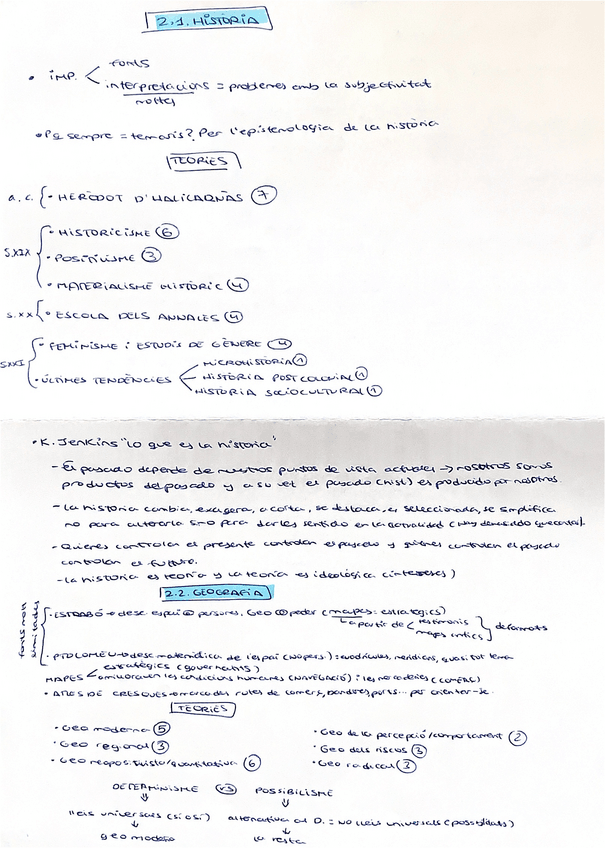 2.1. HISTÒRIA
• IMP. fonts
interpretacions = problemes amb la subjectivitat
notes
• Pq sempre = temaris? Per l'epistemologia de la història
TEORIES
a.C. • HERÒDOT D'HALICARNÀS 7
• HISTORICISME 6
S.XIX • POSITIVISME 3
• MATERIALISME HISTÒRIC 4
S.XX • ESCOLA DELS ANNALES 4
• FEMINISME i ESTUDIS DE GÈNERE 4
SXXI MICROHISTÒRIA 1
• ÚLTIMES TENDÈNCIES HISTÒRIA POSTCOLONIAL 1
HISTORIA SOCIOCULTURAL 1
• K. Jenkins "Lo que es la historia"
- El pasado depende de nuestros puntos de vista actuales → nosotros somos
productos del pasado y a su vez el pasado (hist) es producido por nosotros.
- La historia cambia, exagera, acorta, se destaca, es seleccionada, se simplifica
no para alterarla sino para darles sentido en la actualidad
- Quienes controlan el presente controlan el pasado y quienes controlan el pasado
controlan el futuro.
- la historia es teoría y la teoría es ideológica (intereses)
2.2. GEOGRAFIA
• ESTRABÓ → desc espai persones. Geo poder (mapes: estratègics)
a partir de testimonis
mapes antics deformats
fonts molt limitades
• PTOLOMEU → desc matemàtica de l'espai (mapes): quadrícules, meridians, quasi tot tema
estratègics (governants)
MAPES → les condicions humanes (NAVEGACIÓ) i les (COMERÇ)
• ATLES DE CRESQUES → marcades rutes de comerç, banderes, ports... per orientar-se.
TEORIES
• Geo moderna 5
• Geo de la percepció/comportament 2
• Geo regional 3
• Geo dels riscos 3
• Geo neopositivista/quantitativa 6
• Geo radical 3
DETERMINISME VS POSSIBILISME
lleis universals (sí o sí) alternativa al D. = NO lleis universals (possibilitats)
geo moderna la resta